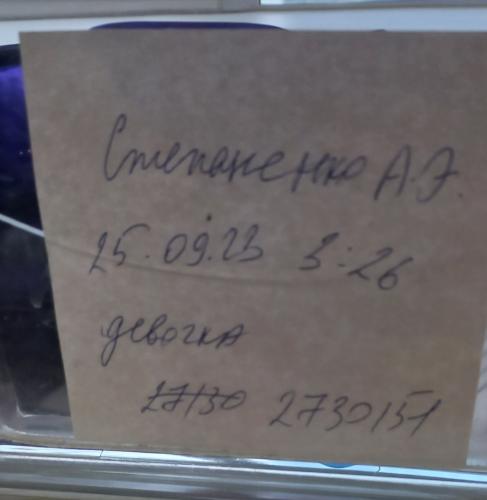 Степаненко А.Э.
25.09.23 3:26
девочка
2730/51